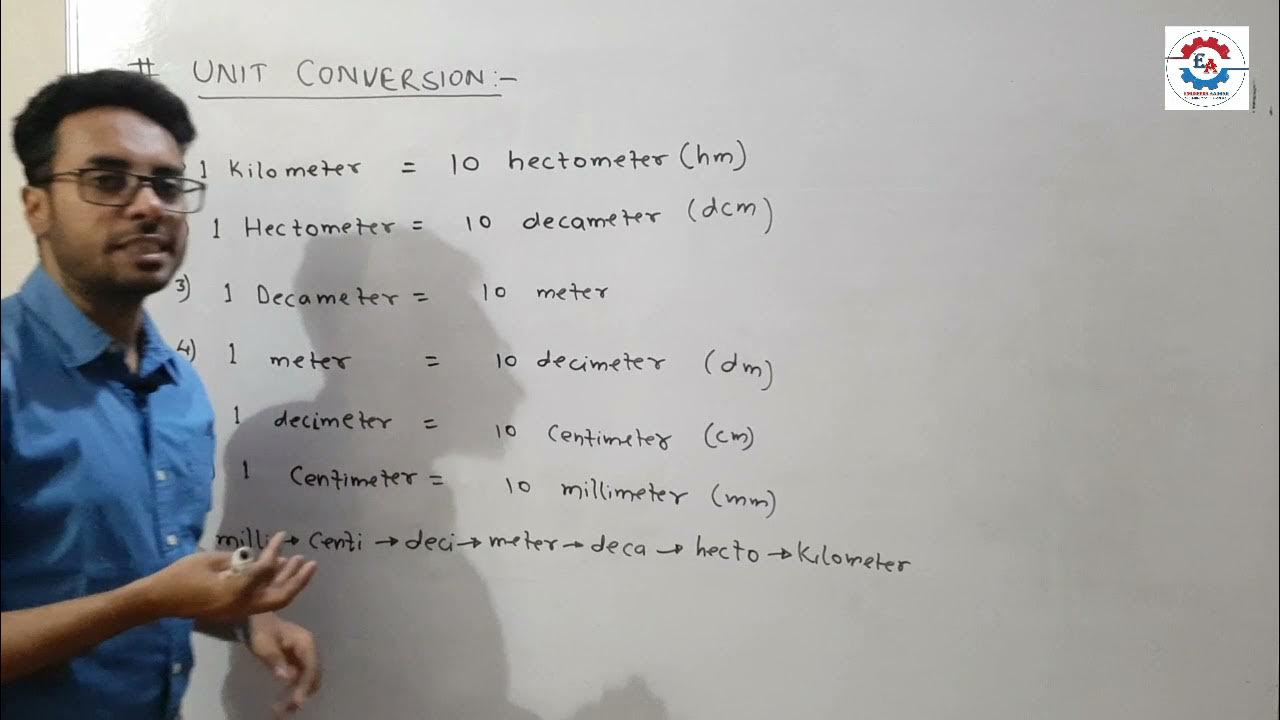 # UNIT CONVERSION:-
1 Kilometer = 10 hectometer (hm)
1 Hectometer = 10 decameter (dcm)
3) 1 Decameter = 10 meter
4) 1 meter = 10 decimeter (dm)
1 decimeter = 10 centimeter (cm)
1 Centimeter = 10 millimeter (mm)
milli → Centi → deci → meter → deca → hecto → Kilometer
EA